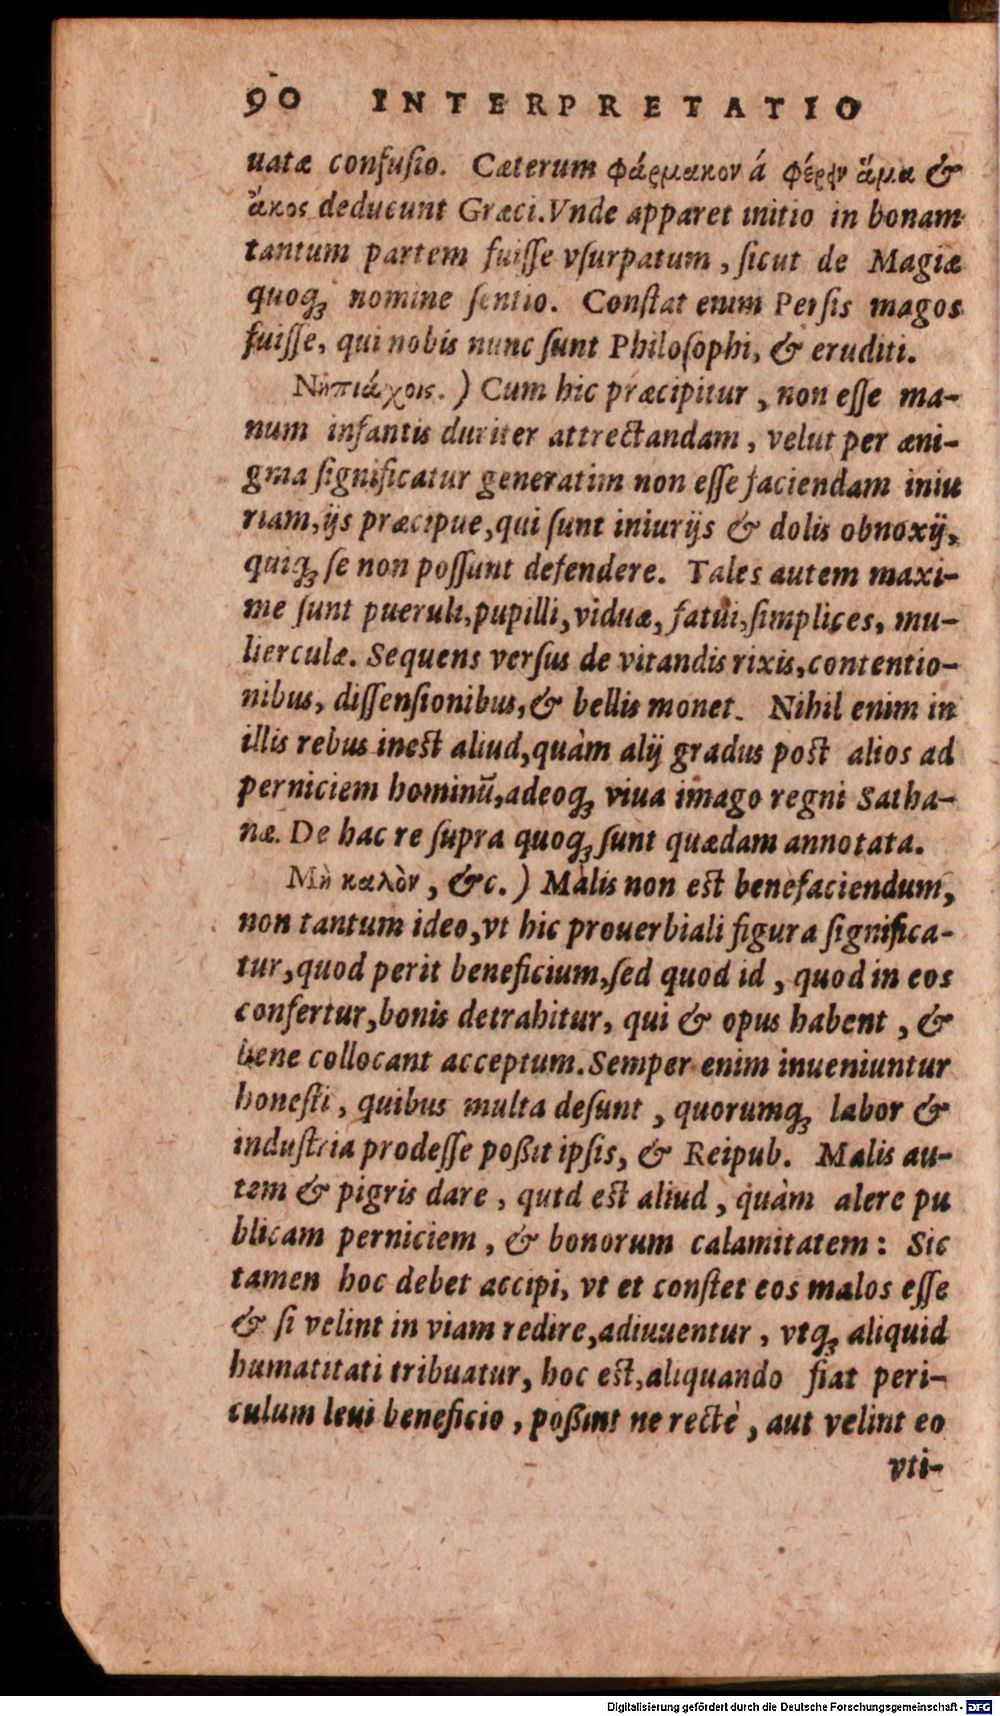 90 INTERPRETATIO
uatæ confuſio. Cæterum φάρμακον á φέρειν ἅμα &
ἄκος deducunt Græci. Vnde apparet initio in bonam
tantum partem fuiſſe vſurpatum, ſicut de Magiæ
quoqꝫ nomine ſentio. Conſtat enim Perſis magos
fuiſſe, qui nobis nunc ſunt Philoſophi, & eruditi.
Νηπιάχοις. ) Cum hic præcipitur, non eſſe ma-
num infantis duriter attrectandam, velut per æni-
gma ſignificatur generatim non eſſe faciendam iniu
riam, ijs præcipue, qui ſunt iniurijs & dolis obnoxij,
quiqꝫ ſe non poſſunt defendere. Tales autem maxi-
me ſunt pueruli, pupilli, viduæ, fatui, ſimplices, mu-
lierculæ. Sequens verſus de vitandis rixis, contentio-
nibus, diſſenſionibus, & bellis monet. Nihil enim in
illis rebus ineſt aliud, quàm alij gradus poſt alios ad
perniciem hominū, adeoqꝫ viua imago regni Satha-
næ. De hac re ſupra quoqꝫ ſunt quædam annotata.
Μὴ καλὸν, &c. ) Malis non eſt benefaciendum,
non tantum ideo, vt hic prouerbiali figura ſignifica-
tur, quod perit beneficium, ſed quod id, quod in eos
confertur, bonis detrahitur, qui & opus habent, &
bene collocant acceptum. Semper enim inueniuntur
honeſti, quibus multa deſunt, quorumqꝫ labor &
induſtria prodeſſe poßit ipſis, & Reipub. Malis au-
tem & pigris dare, quid eſt aliud, quàm alere pu
blicam perniciem, & bonorum calamitatem: Sic
tamen hoc debet accipi, vt et conſtet eos malos eſſe
& ſi velint in viam redire, adiuuentur, vtqꝫ aliquid
humatitati tribuatur, hoc eſt, aliquando fiat peri-
culum leui beneficio, poßint ne rectè, aut velint eo
vti-
Digitalisierung gefördert durch die Deutsche Forschungsgemeinschaft - DFG